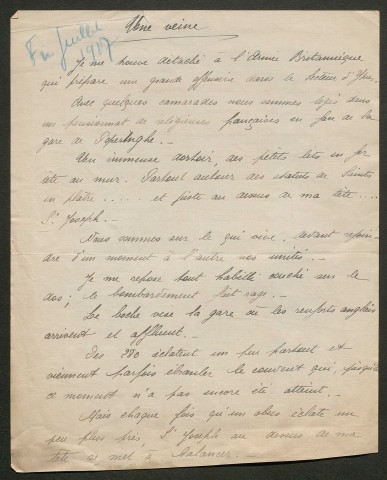 Une veine
Fin Juillet
1917
Je me trouve détaché à l'Armée Britannique
qui prépare une grande offensive dans le secteur d'Ypres.
Avec quelques camarades nous sommes logés dans
un pensionnat de religieuses françaises en face de la
gare de Poperinghe. -
Un immense dortoir, des petits lits en fer
tête au mur. Partout autour des statues de Saints
en plâtre ..... et juste au dessus de ma tête ....
St Joseph. -
Nous sommes sur le qui vive, devant rejoin-
dre d'un moment à l'autre nos unités. -
Je me repose tout habillé couché sur le
dos ; le bombardement fait rage. -
Le boche vise la gare où les renforts anglais
arrivent et affluent. -
Des 380 éclatent un peu partout et
viennent parfois ébranler le couvent qui, jusqu'à
ce moment n'a pas encore été atteint. -
Mais chaque fois qu'un obus éclate un
peu plus près, St Joseph au dessus de ma
tête se met à balancer. -